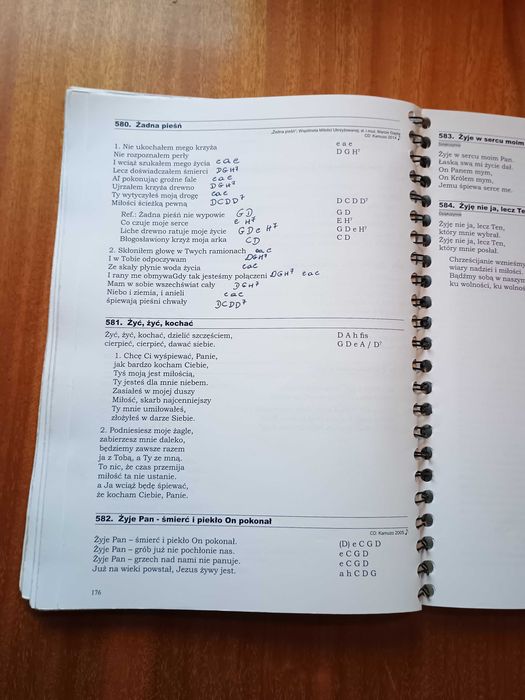 580. Żadna pieśń
„Żadna pieśń”, Wspólnota Miłości Ukrzyżowanej, sł. i muz. Marcin Gajda
CD: Kamuzo 2014
1. Nie ukochałem mego krzyża e a e
Nie rozpoznałem perły D G H7
I wciąż szukałem mego życia e a e
Lecz doświadczałem śmierci D G H7
Aż pokonując groźne fale e a e
Ujrzałem krzyża drewno D G H7
Ty wytyczyłeś moją drogę e a e
Miłości ścieżką pewną D C D D7 D C D D7
Ref.: Żadna pieśń nie wypowie G D G D
Co czuje moje serce e H7 E H7
Liche drewno ratuje moje życie G D e H7 G D e H7
Błogosławiony krzyż moja arka C D C D
2. Skłoniłem głowę w Twych ramionach e a e
I w Tobie odpoczywam D G H7
Ze skały płynie woda życia e a e
I rany me obmywaGdy tak jesteśmy połączeni D G H7 e a e
Mam w sobie wszechświat cały D G H7
Niebo i ziemia, i anieli e a e
śpiewają pieśni chwały D C D D7
581. Żyć, żyć, kochać
Żyć, żyć, kochać, dzielić szczęściem, D A h fis
cierpieć, cierpieć, dawać siebie. G D e A / D7
1. Chcę Ci wyśpiewać, Panie,
jak bardzo kocham Ciebie,
Tyś moją jest miłością,
Ty jesteś dla mnie niebem.
Zasiałeś w mojej duszy
Miłość, skarb najcenniejszy
Ty mnie umiłowałeś,
złożyłeś w darze Siebie.
2. Podniesiesz moje żagle,
zabierzesz mnie daleko,
będziemy zawsze razem
ja z Tobą, a Ty ze mną.
To nic, że czas przemija
miłość ta nie ustanie.
a Ja wciąż będę śpiewać,
że kocham Ciebie, Panie.
582. Żyje Pan - śmierć i piekło On pokonał
CD: Kamuzo 2005
Żyje Pan – śmierć i piekło On pokonał. (D) e C G D
Żyje Pan – grób już nie pochłonie nas. e C G D
Żyje Pan – grzech nad nami nie panuje. e C G D
Już na wieki powstał, Jezus żywy jest. a h C D G
176
583. Żyje w sercu moim
Żyje w sercu moim Pan.
Łaska swa mi życie dał.
On Panem mym,
On Królem mym,
Jemu śpiewa serce me.
584. Żyję nie ja, lecz Ten
Żyję nie ja, lecz Ten,
który mnie wybrał.
Żyję nie ja, lecz Ten,
który mnie posłał.
Chrześcijanie wznieśmy
wiary nadziei i miłości
Bądźmy sobą w naszym
ku wolności, ku wolnoś